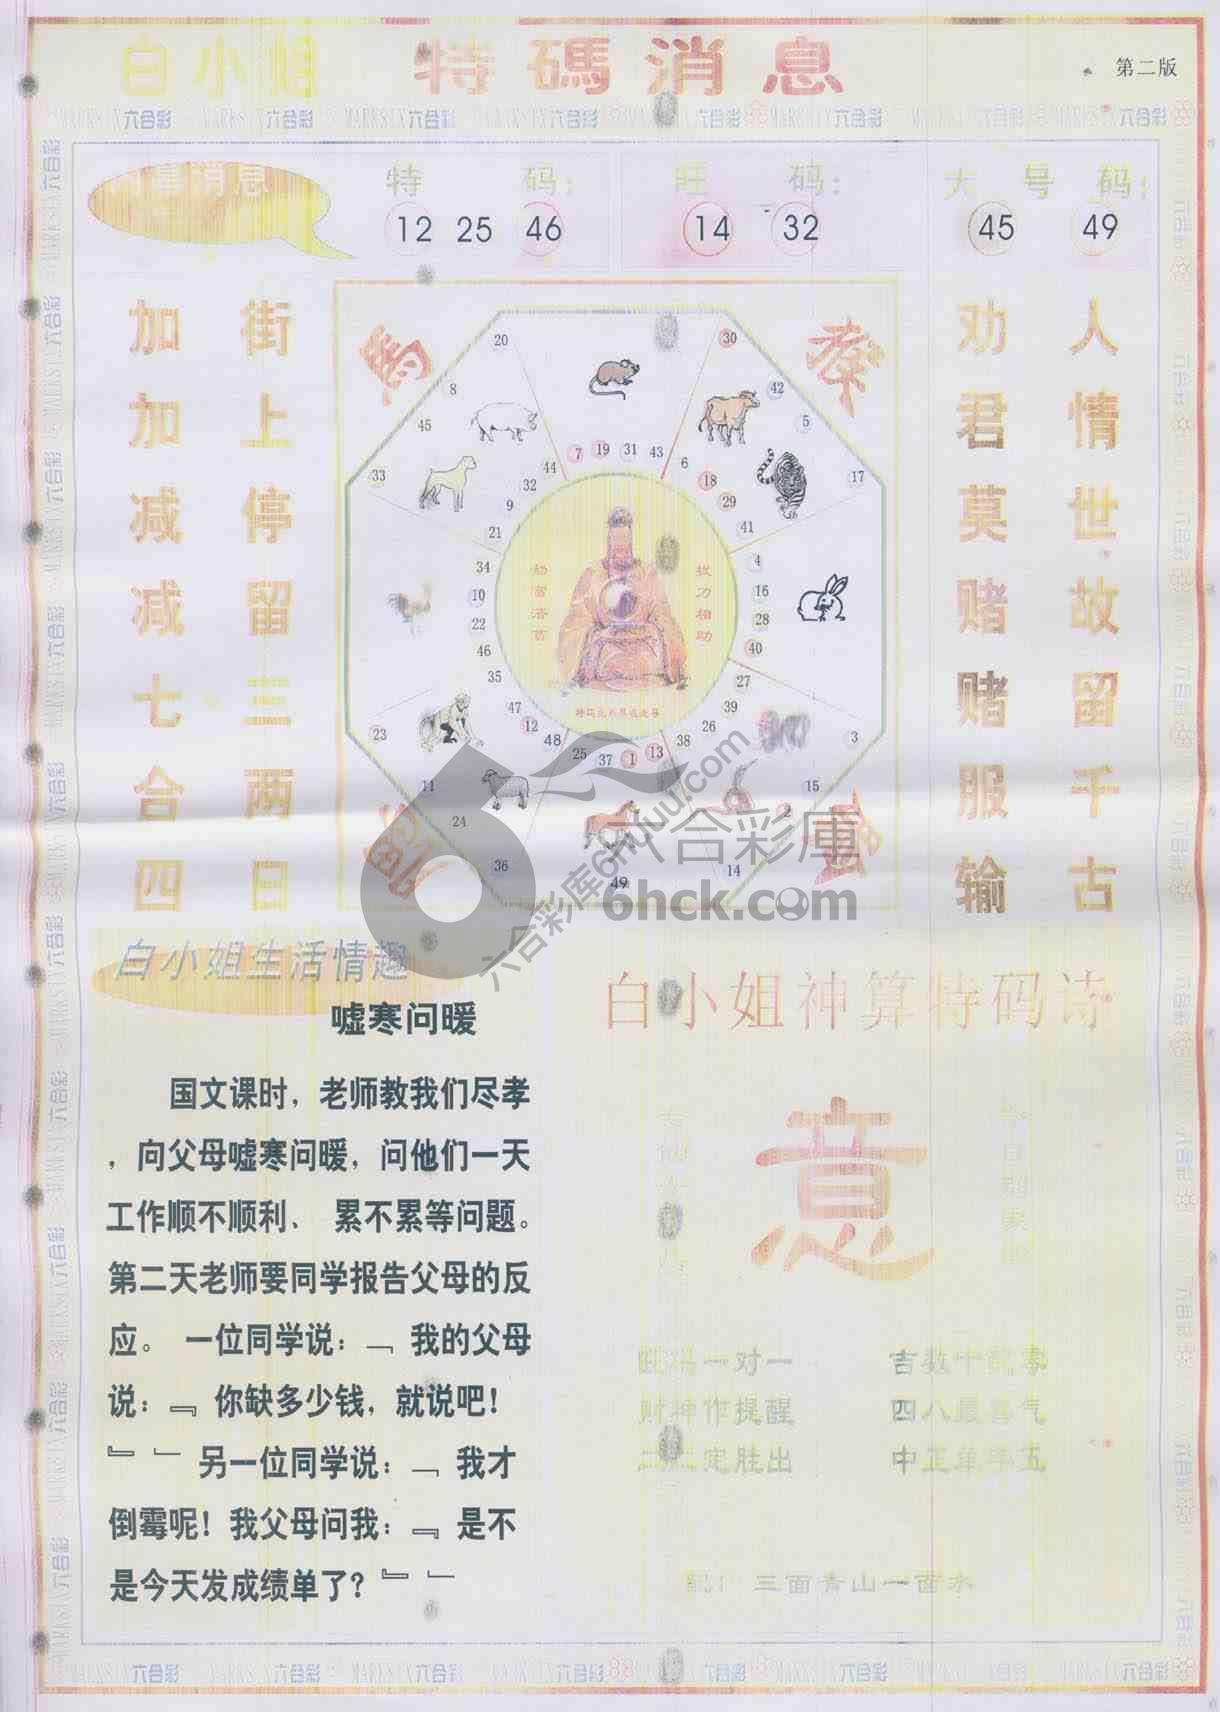 白小姐 特碼消息
第二版
特码：
12 25 46
旺码：
14 32
大号码：
45 49
加加减减七合四
街上停留三两日
劝君莫赌赌服输
人情世故留千古
20
30
8
42
45
5
33
17
7 19 31 43
44
32
9
21
6
18
29
41
34
10
22
46
4
16
28
40
35
47
12
48
27
39
26
38
25 37 1 13
23
11
24
36
49
3
15
2
14
拔刀相助
六合彩庫
6hck.com
六合彩库6huuu.com
白小姐生活情趣
嘘寒问暖
国文课时，老师教我们尽孝
，向父母嘘寒问暖，问他们一天
工作顺不顺利、 累不累等问题。
第二天老师要同学报告父母的反
应。 一位同学说：﹁ 我的父母
说：﹃ 你缺多少钱，就说吧！
﹄﹂ 另一位同学说：﹁ 我才
倒霉呢！我父母问我：﹃ 是不
是今天发成绩单了？﹄﹂
白小姐神算特码诗
意
旺码一对一
财神作提醒
定胜出
四八最喜气
配：三面青山一面水